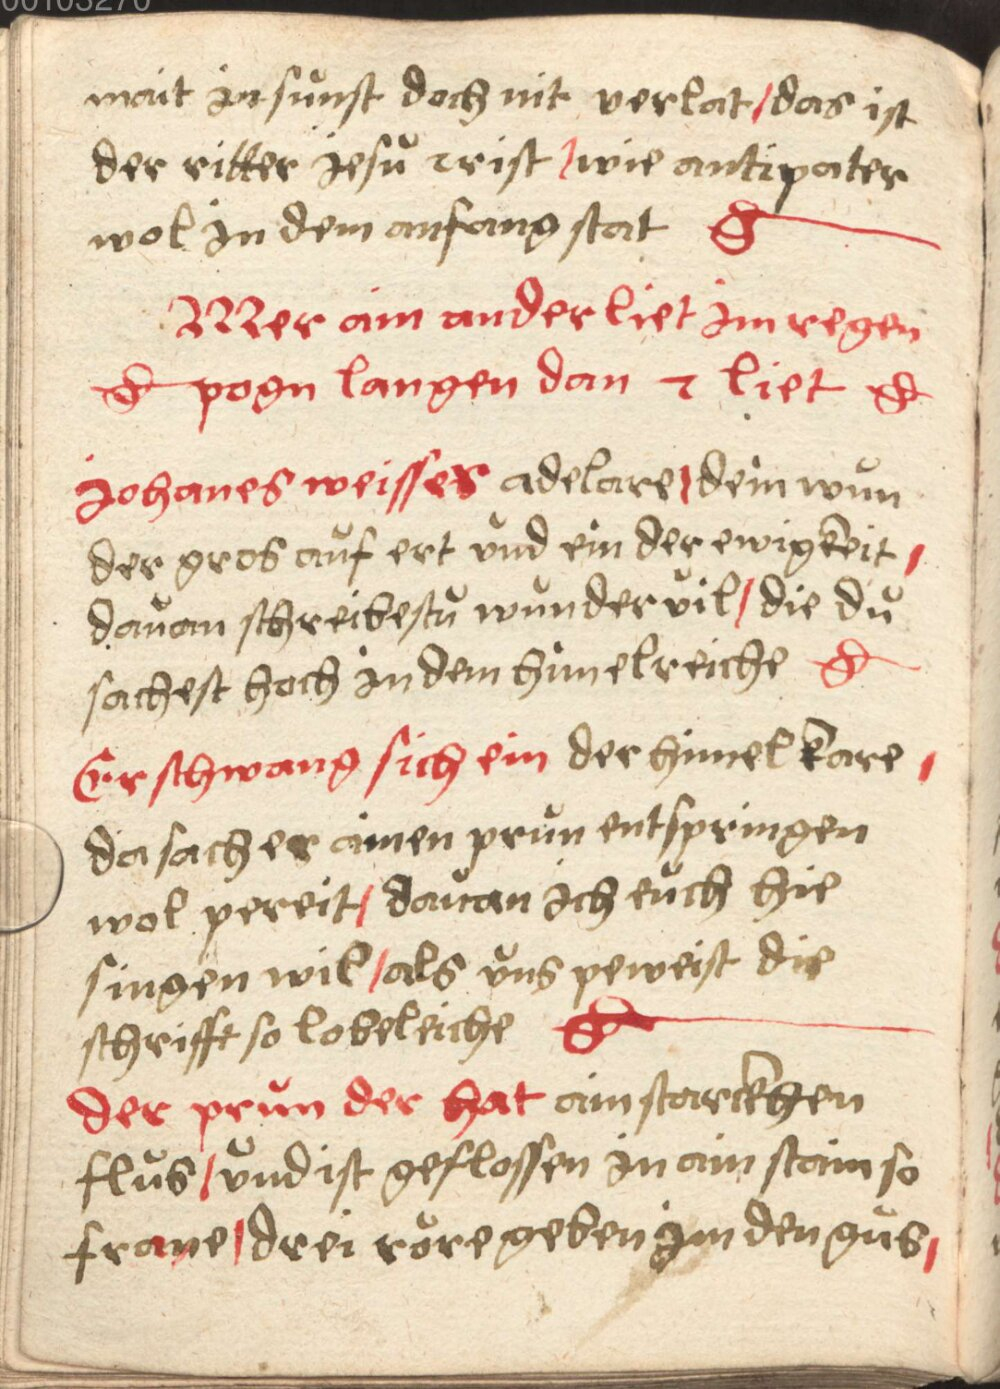 00103270
mait in sunst doch nit verlat / das ist
der ritter jesu crist / wie antipater
wol in dem anfang stat
Mer ain ander liet im regen
pogn langen dan 2 liet
Johanes weisser adelare / dein wun
der gros auf ert vnd ein der ewigkeit /
dauan schreibestu wunder vil / die du
sachest hoch in dem himelreiche
Er schwang sich ein der himel kare /
da sach er ainen prun entspringen
wol pereit / dauan ich euch hie
singen wil / als vns peweist die
schrifft so lobeleiche
Der prun der hat ain starckhen
flus / vnd ist geflossen in ain stain so
frane / drei rore geben im den gus /